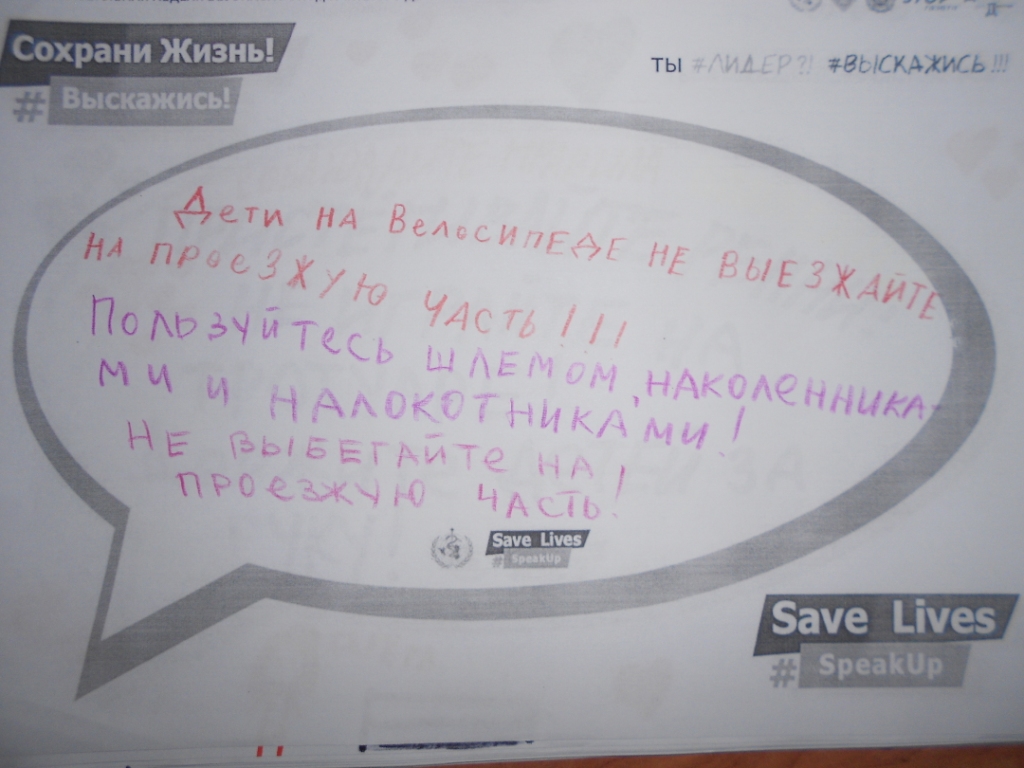 Сохрани Жизнь!
# Выскажись!
ТЫ #ЛИДЕР?! #ВЫСКАЖИСЬ!!!
Дети на Велосипеде не выезжайте
на проезжую часть!!!
Пользуйтесь шлемом, наколенника-
ми и налокотниками!
Не выбегайте на
проезжую часть!
Save Lives
# SpeakUp
Save Lives
# SpeakUp